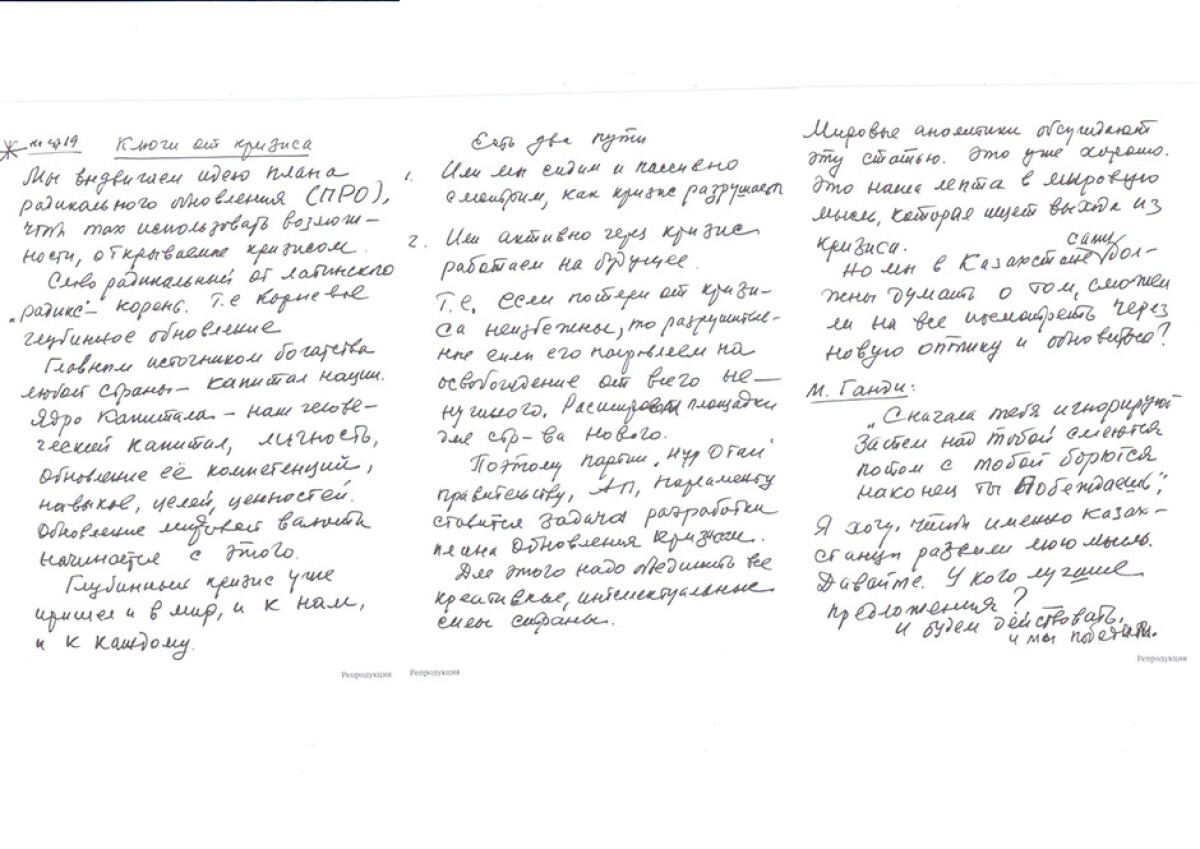 Ключи от кризиса
Мы выдвигаем идею плана
радикального обновления (ПРО),
чтоб max использовать возмож-
ности, открываемые кризисом.
Слово радикальный от латинского
„радикс“ - корень. Т.е корневое
глубинное обновление
Главным источником богатства
любой страны - капитал нации.
Ядро капитала - наш челове-
ческий капитал, личность,
обновление её компетенций,
навыков, целей, ценностей.
Обновление мировой валюты
начинается с этого.
Глубинный кризис уже
пришел и в мир, и к нам,
и к каждому.
Репродукция
Есть два пути
1. Или мы сидим и пассивно
смотрим, как кризис разрушает
2. Или активно через кризис
работаем на будущее.
Т.е. если потери от кризи-
са неизбежны, то разрушитель-
ные силы его направляем на
освобождение от всего не-
нужного. Расширяем площадки
для стр-ва нового.
Поэтому партии „Нур Отан“
правительству, АП, Парламенту
ставится задача разработки
плана обновления кризисом.
Для этого надо объединить все
креативные, интелектуальные
силы страны.
Репродукция
Мировые аналитики обсуждают
эту статью. Это уже хорошо.
Это наша лепта в мировую
мысль, которая ищет выхода из
кризиса.
Но мы в Казахстане сами дол-
жны думать о том, сможем
ли на все посмотреть через
новую оптику и обновиться?
М. Ганди:
„Сначала тебя игнорируют
Затем над тобой смеются
потом с тобой борются
наконец ты побеждаешь“,
Я хочу, чтоб именно казах-
станцы развили мою мысль.
Давайте. У кого лучшие
предложения?
И будем действовать,
и мы победим.
Репродукция